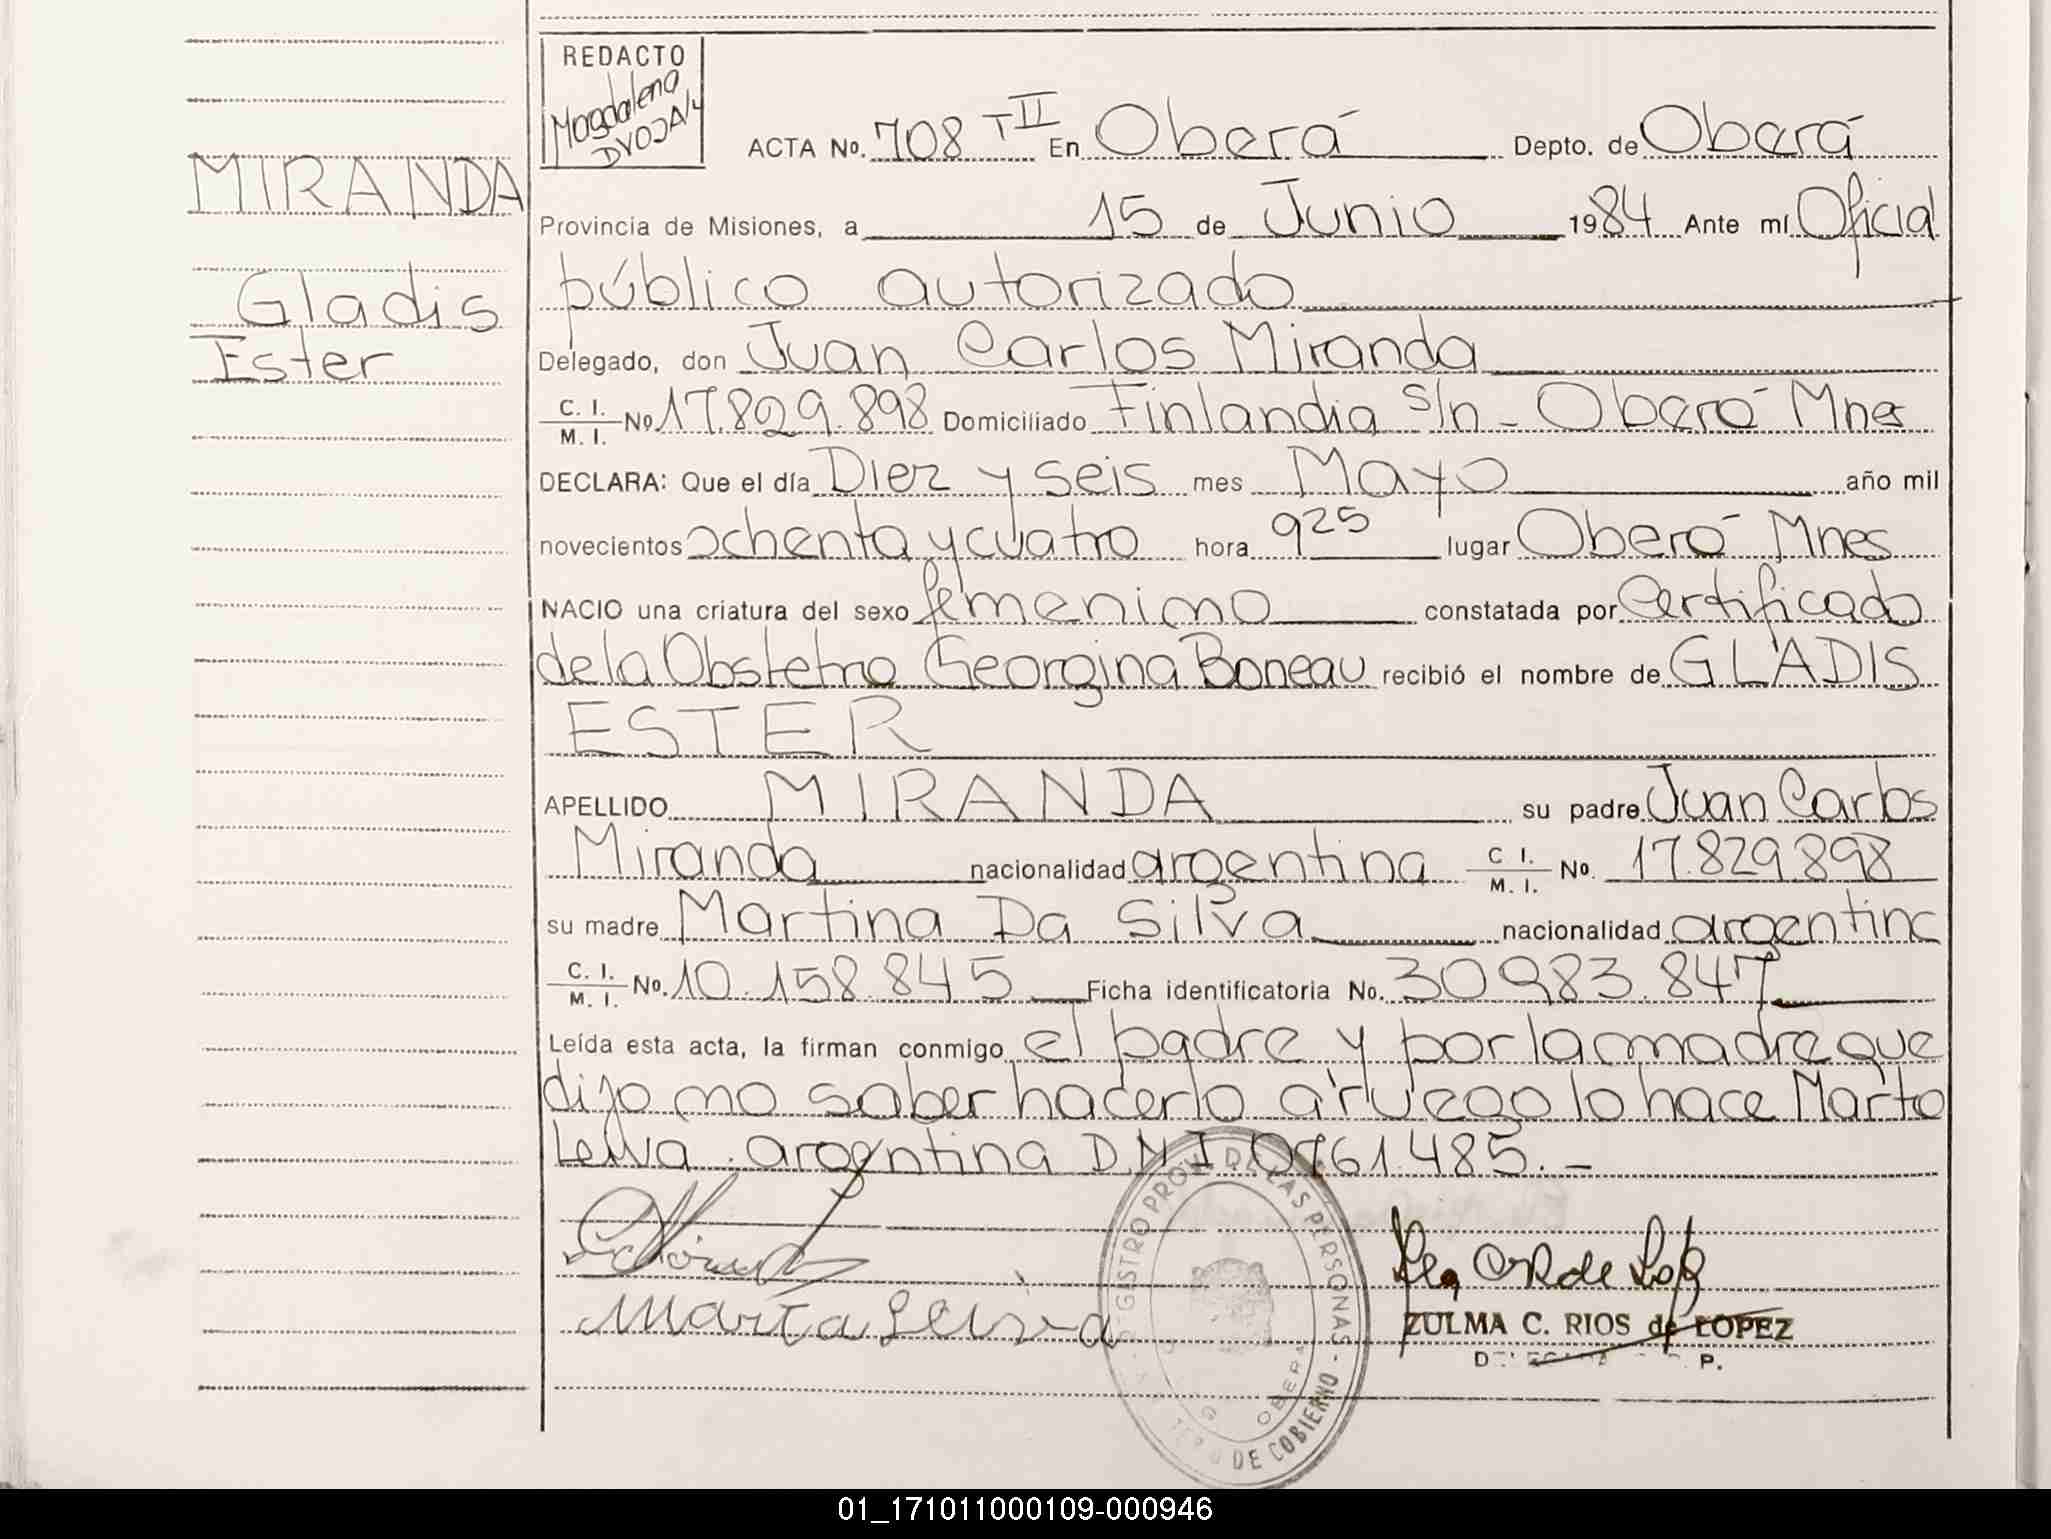 REDACTO
Magdalena
MIRANDA
Gladis
Ester
ACTA No. 708 T II En Oberá Depto. de Oberá
Provincia de Misiones, a 15 de Junio 1984 Ante mí Oficial
público autorizado
Delegado, don Juan Carlos Miranda
C. I. / M. I. No 17.829.898 Domiciliado Finlandia s/n - Oberá Mnes
DECLARA: Que el día Diez y seis mes Mayo año mil
novecientos ochenta y cuatro hora 925 lugar Oberá Mnes
NACIO una criatura del sexo femenino constatada por Certificado
de la Obstetra Georgina Boneau recibió el nombre de GLADIS
ESTER
APELLIDO MIRANDA su padre Juan Carlos
Miranda nacionalidad argentina C I. / M. I. No. 17.829.898
su madre Martina Da Silva nacionalidad argentina
C. I. / M. I. No. 10.158.845 Ficha identificatoria No. 30983.847
Leída esta acta, la firman conmigo el padre y por la madre que
dijo no saber hacerlo a ruego lo hace Marta
Leiva. argentina D.N.I.
Marta Leiva
REGISTRO PROV. DE LAS PERSONAS
OBERA
DE GOBIERNO
ZULMA C. RIOS de LOPEZ
01_171011000109-000946